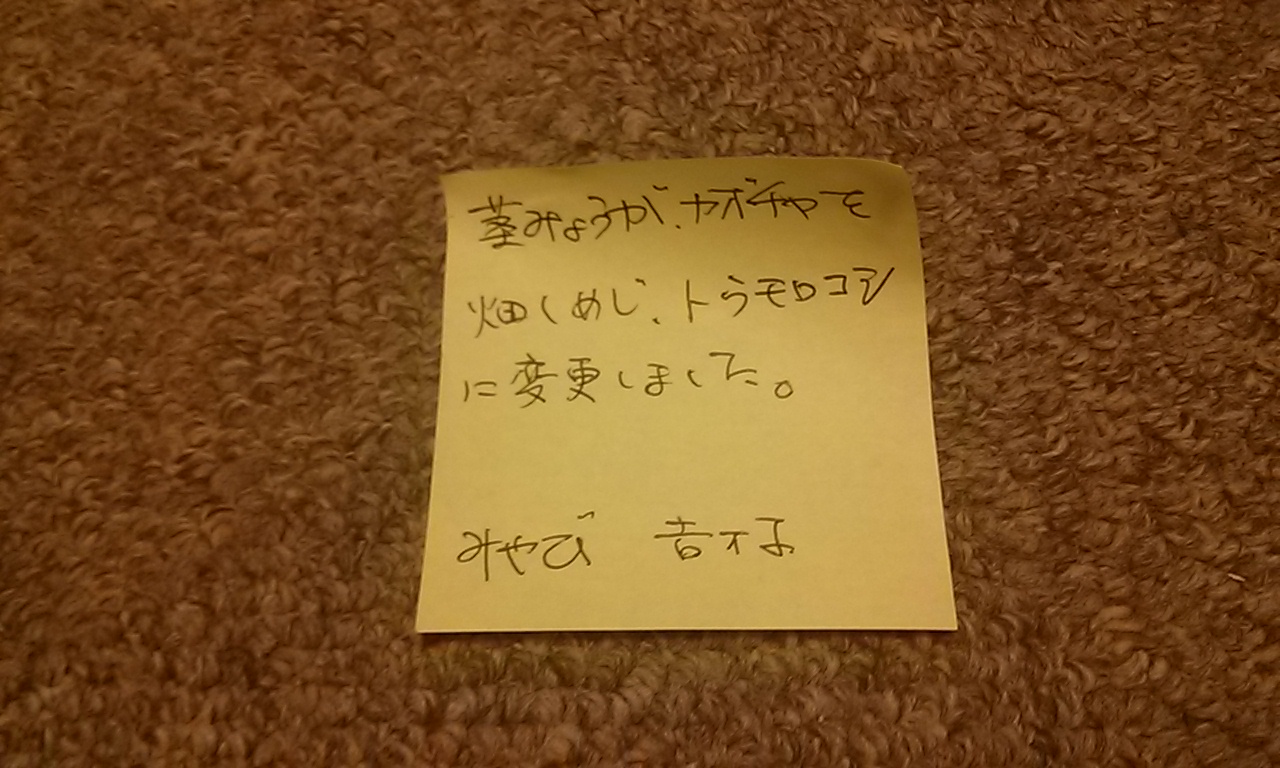 茎みょうが、カボチャを
畑しめじ、トウモロコシ
に変更しました。
みやび